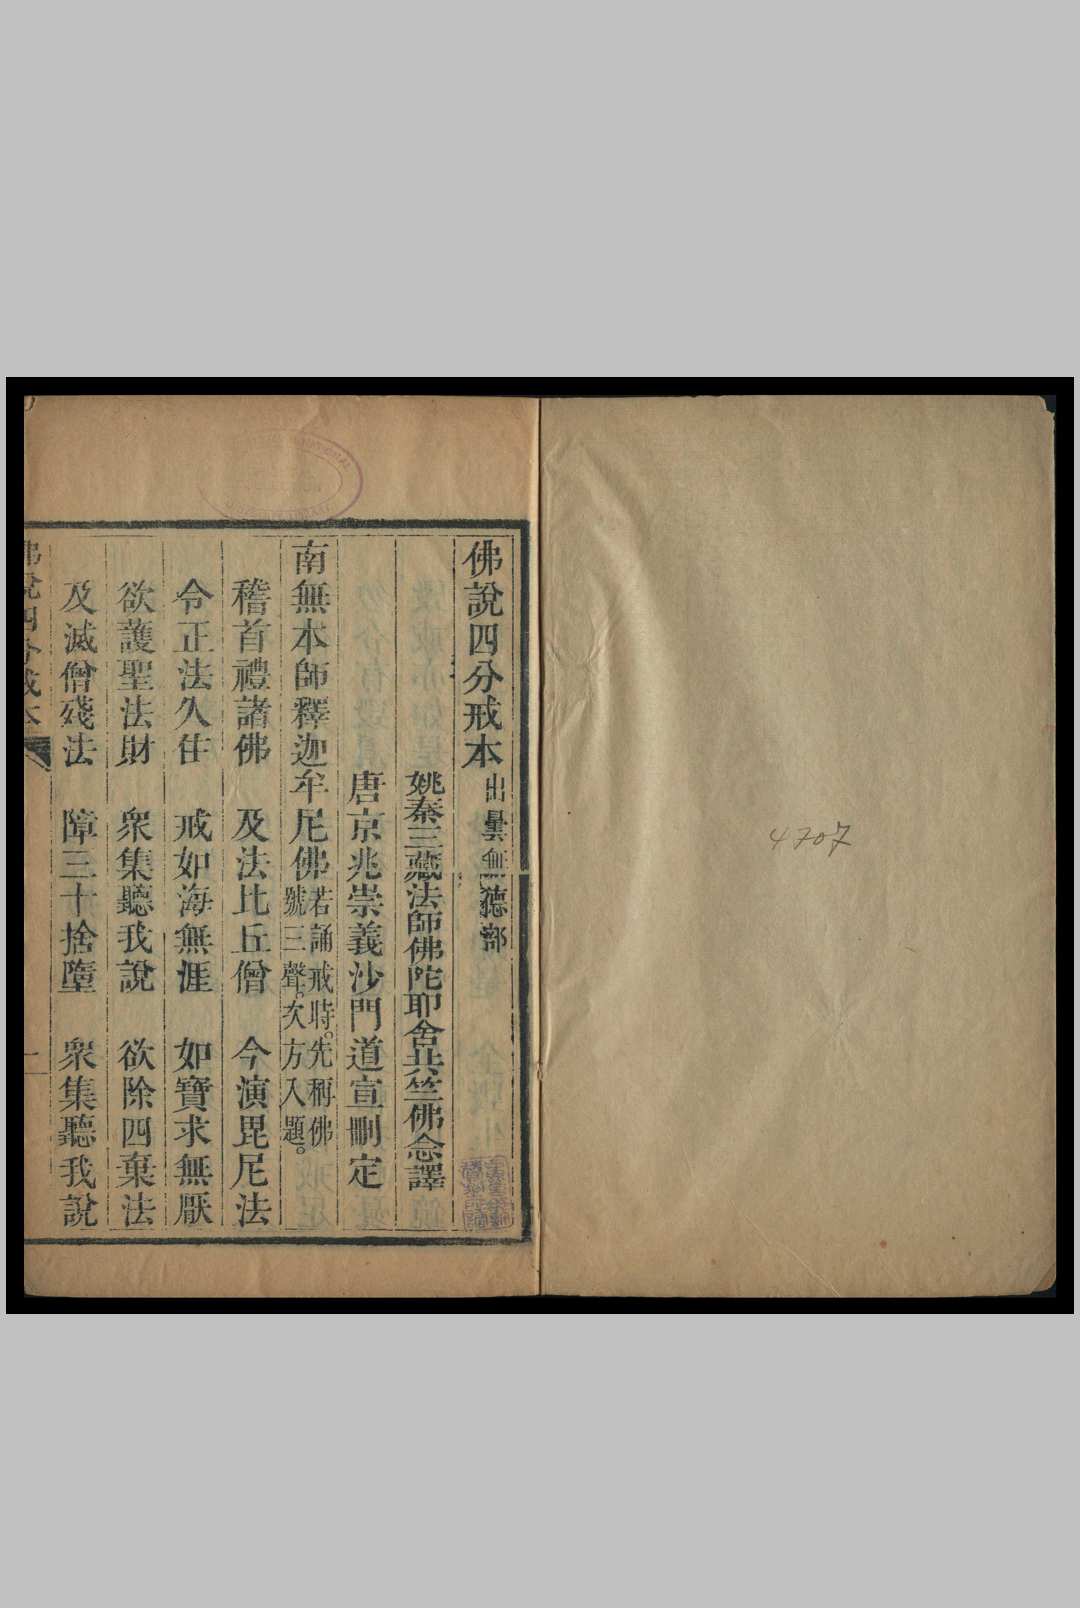 佛說四分戒本 出曇無德部
姚秦三藏法師佛陀耶舍共竺佛念譯
唐京兆崇義沙門道宣刪定
南無本師釋迦牟尼佛 若誦戒時。先稱佛
號三聲。次方入題。
稽首禮諸佛 及法比丘僧 今演毘尼法
令正法久住 戒如海無涯 如寶求無厭
欲護聖法財 衆集聽我說 欲除四棄法
及滅僧殘法 障三十捨墮 衆集聽我說
佛說四分戒本
4707